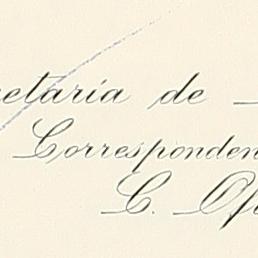 etaria de
Corresponden
C. Of